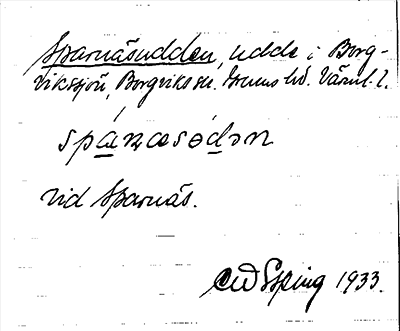 Sparnäsudden, udde i Borg-
vikssjön, Borgviks sn. Grums hd. Värml. l.
spánæsòdən
vid Sparnäs.
CW Esping 1933.